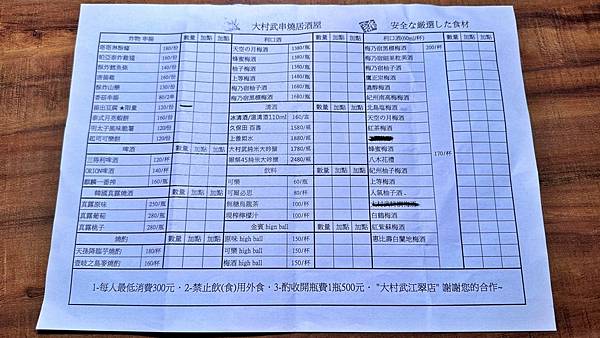 大村武串燒居酒屋 安全な厳選した食材
炸物 串揚 數量 加點 加點 利口酒 數量 加點 加點 利口酒(60ml/杯) 數量 加點 加點
180/份 天空の月梅酒 1380/瓶 梅乃宿黑糖梅酒 200/杯
帕亞泰炸雞 180/份 蜂蜜梅酒 1380/瓶
酥炸鱈魚條 140/份 柚子梅酒 1380/瓶 梅乃宿柚子酒
唐揚雞 160/份 上等梅酒 1480/瓶 鷹正宗梅酒
酥炸山藥 130/份 梅乃宿柚子酒 1480/瓶 濃醇梅酒
香菇串揚 80/2串 梅乃宿黑糖梅酒 1680/瓶 紀州南高梅梅酒
揚出豆腐 ★限量 120/份 清酒 數量 加點 加點 北島塩梅酒
泰式月亮蝦餅 160/份 冰清酒/溫清酒110ml 160/壺 天空の月梅酒
明太子風味脆薯 120/份 久保田 百壽 1580/瓶 紅茶梅酒
起司可樂餅 120/份 上善如水 1880/瓶
啤酒 數量 加點 加點 大村武純米大吟釀 1780/瓶 170/杯 蜂蜜梅酒
三得利啤酒 120/杯 獺祭45純米大吟釀 2480/瓶 八木花禮
ORION啤酒 140/杯 飲料 數量 加點 加點 紀州柚子梅酒
麒麟一番搾 160/瓶 可樂 60/瓶 上等梅酒
韓國真露燒酒 數量 加點 加點 可爾必思 80/杯 人氣柚子酒
真露原味 250/瓶 無糖烏龍茶 100/杯
真露葡萄 280/瓶 現榨檸檬汁 100/杯 白鶴梅酒
真露桃子 280/瓶 金賓 hign ball 數量 加點 加點 紅紫蘇梅酒
燒酌 數量 加點 加點 原味 high ball 150/杯 惠比壽白蘭地梅酒
天孫降臨芋燒酌 180/杯 可樂 high ball 150/杯
壹岐之島麥燒酌 160/杯 梅酒 high ball 150/杯
1-每人最低消費300元．2-禁止飲(食)用外食．3-酌收開瓶費1瓶500元．"大村武江翠店" 謝謝您的合作~